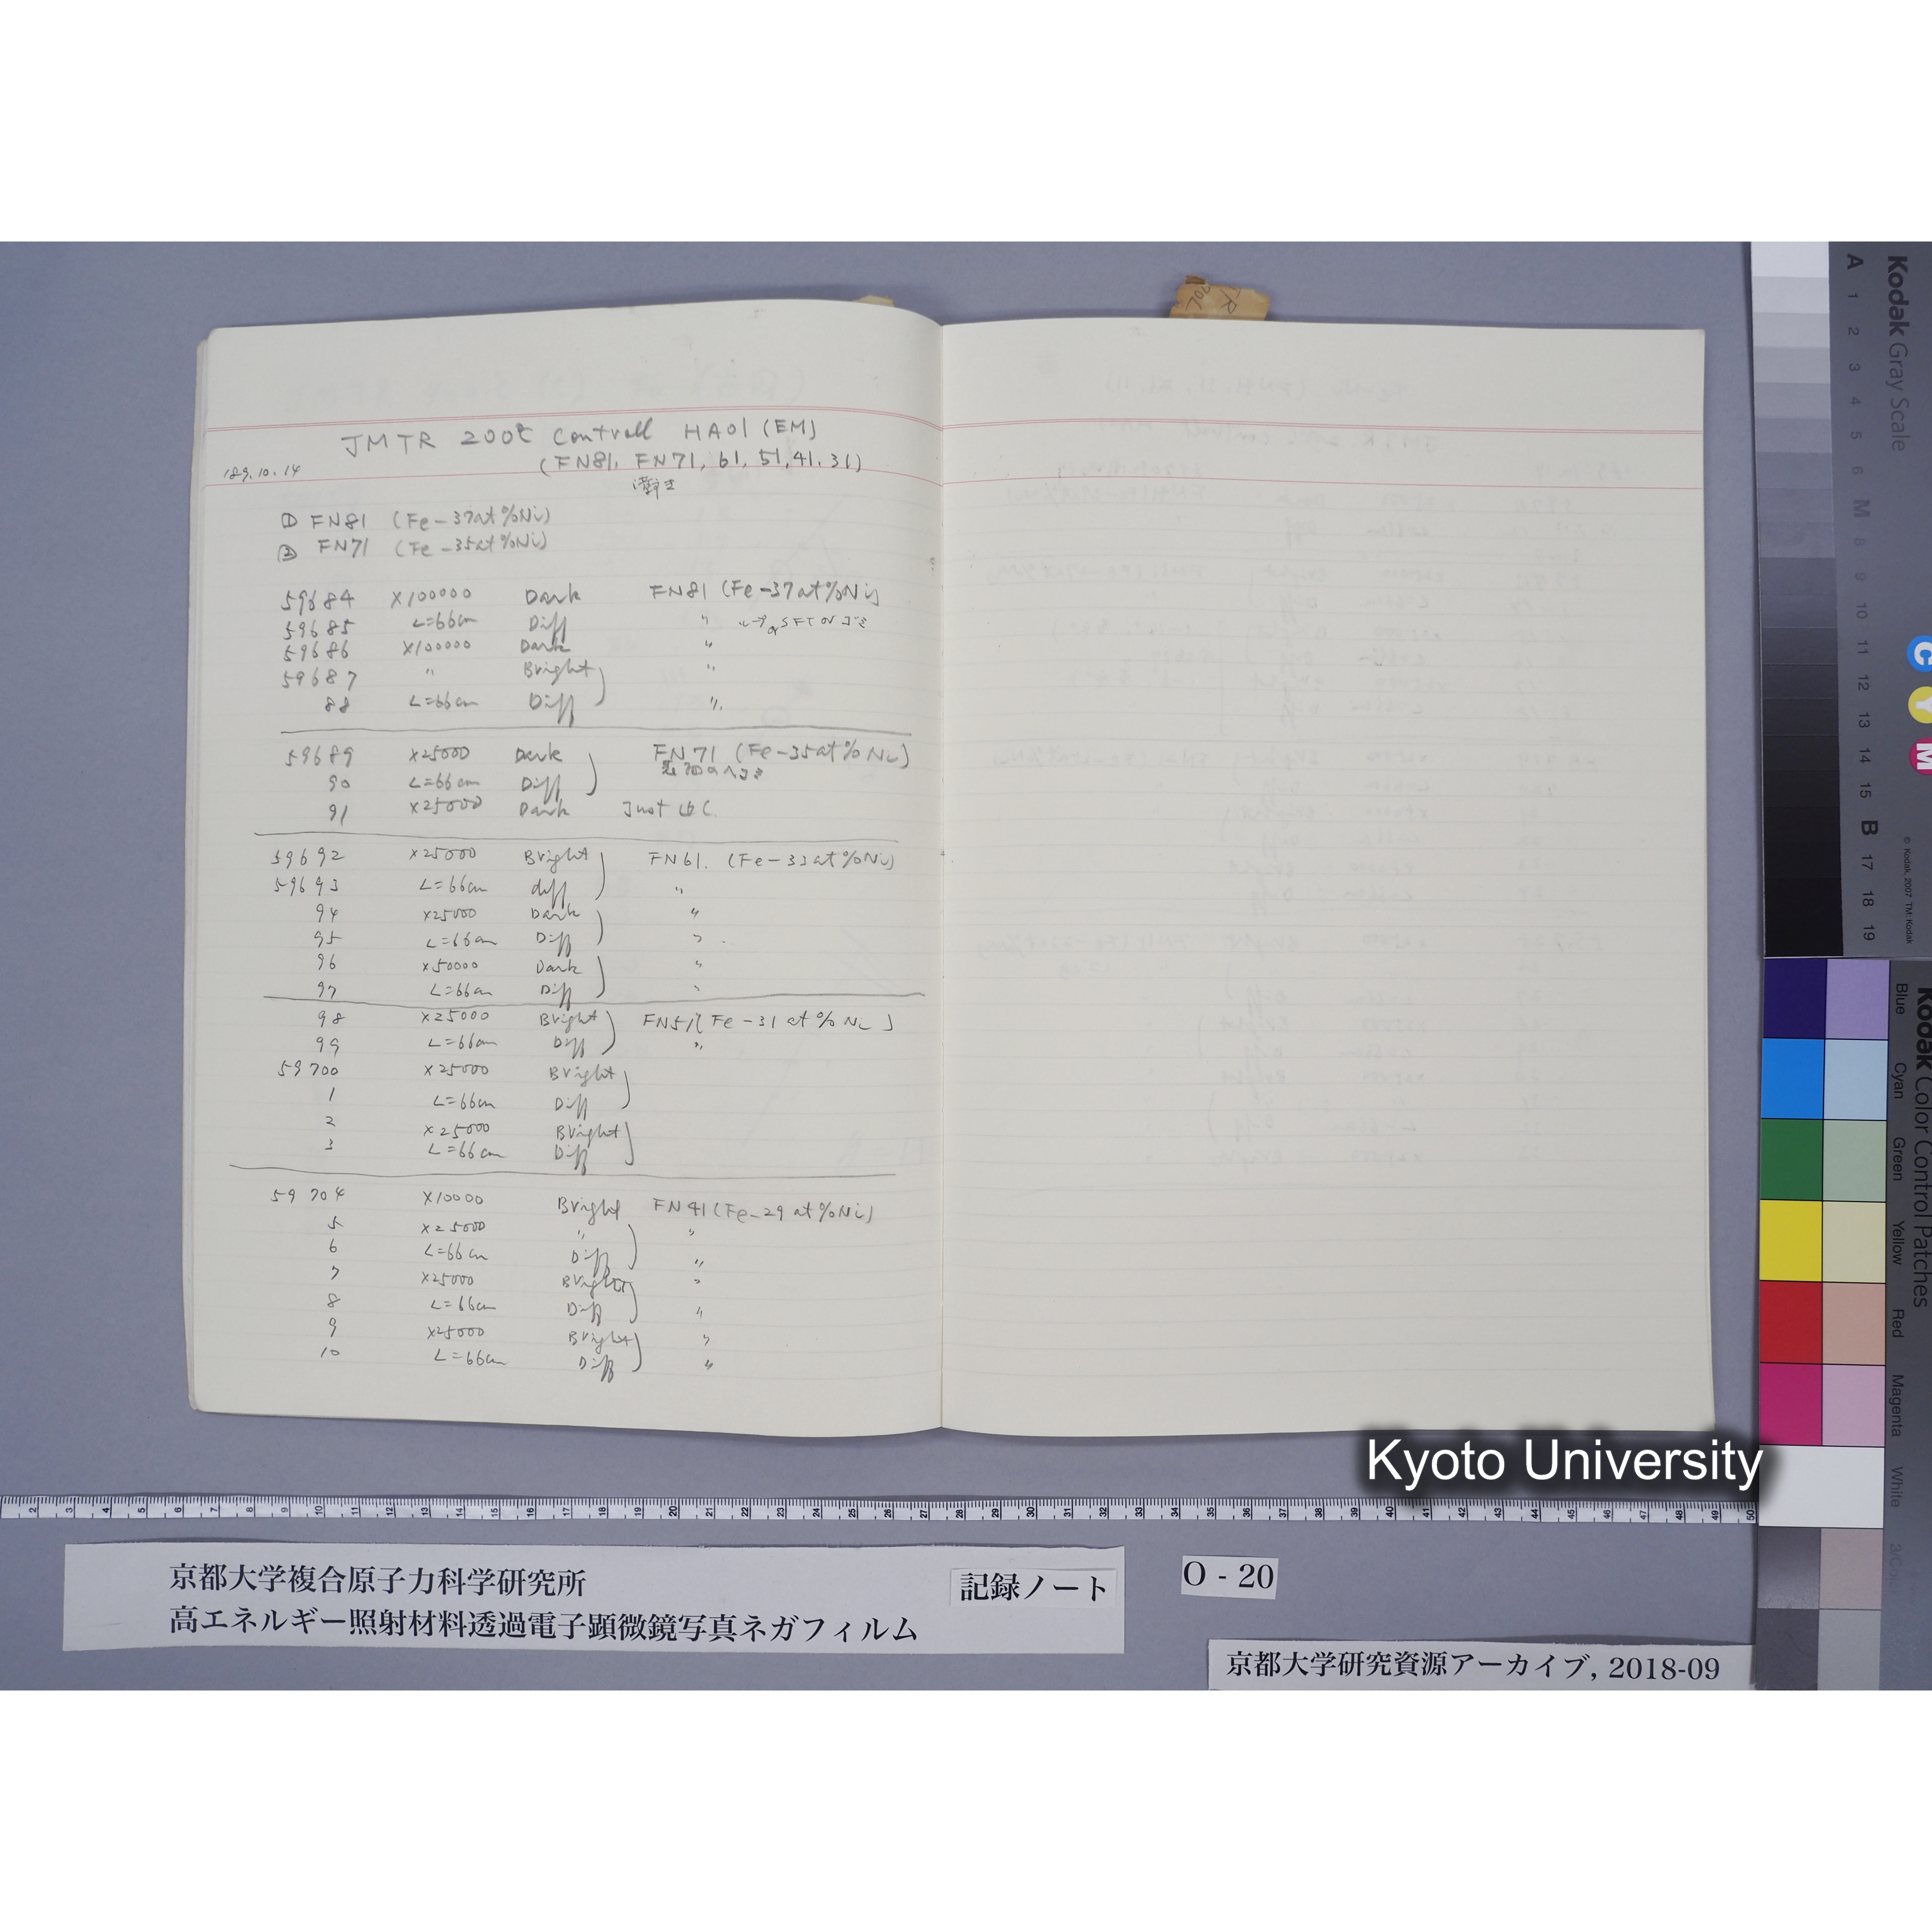 JMTR 200℃ Controll HA01 (EM)
(FN81, FN71, 61, 51, 41, 31)
'89.10.14
① FN81 (Fe-37at%Ni)
② FN71 (Fe-35at%Ni)
59684 ×100000 Dark FN81 (Fe-37at%Ni)
59685 L=66cm Diff 〃
59686 ×100000 Dark 〃
59687 〃 Bright 〃
88 L=66cm Diff 〃
59689 ×25000 Dark FN71 (Fe-35at%Ni)
90 L=66cm Diff
91 ×25000 Dark Just
59692 ×25000 Bright FN61. (Fe-33at%Ni)
59693 L=66cm diff 〃
94 ×25000 Dark 〃
95 L=66cm Diff 〃
96 ×50000 Dark 〃
97 L=66cm Diff 〃
98 ×25000 Bright FN51 (Fe-31at%Ni)
99 L=66cm Diff 〃
59700 ×25000 Bright
1 L=66cm Diff
2 ×25000 Bright
3 L=66cm Diff
59704 ×10000 Bright FN41 (Fe-29at%Ni)
5 ×25000 〃 〃
6 L=66cm Diff 〃
7 ×25000 Bright 〃
8 L=66cm Diff 〃
9 ×25000 Bright 〃
10 L=66cm Diff 〃
Kyoto University
京都大学複合原子力科学研究所
高エネルギー照射材料透過電子顕微鏡写真ネガフィルム
記録ノート
O - 20
京都大学研究資源アーカイブ, 2018-09
Kodak Gray Scale
A 1 2 3 4 5 6 M 8 9 10 11 12 13 14 15 B 17 18 19
C Y M
© Kodak, 2007 TM: Kodak
Kodak Color Control Patches
Blue Cyan Green Yellow Red Magenta White
2 3 4 5 6 7 8 9 10 11 12 13 14 15 16 17 18 19 20 21 22 23 24 25 26 27 28 29 30 31 32 33 34 35 36 37 38 39 40 41 42 43 44 45 46 47 48 49 50